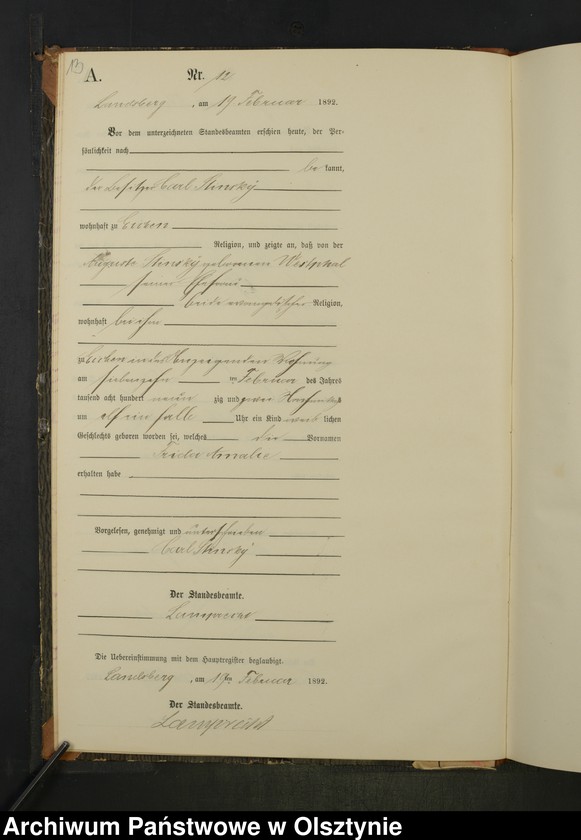 13
A. Nr. 12
Landsberg, am 19 Februar 1892.
Vor dem unterzeichneten Standesbeamten erschien heute, der Per-
sönlichkeit nach
be kannt,
der Besitzer Carl Stensky
wohnhaft zu
Religion, und zeigte an, daß von der
Auguste Stensky geborenen Westphal
seiner Ehefrau
beide evangelischer Religion,
wohnhaft bei ihm
zu in der Wohnung
am siebzehn ten Februar des Jahres
tausend acht hundert neun zig und zwei
um elf ein halb Uhr ein Kind weib lichen
Geschlechts geboren worden sei, welches die Vornamen
Frieda Amalie
erhalten habe
Vorgelesen, genehmigt und unterschrieben
Carl Stensky
Der Standesbeamte.
Lamprecht
Die Uebereinstimmung mit dem Hauptregister beglaubigt.
Landsberg, am 19ten Februar 1892.
Der Standesbeamte.
Lamprecht
Archiwum Państwowe w Olsztynie